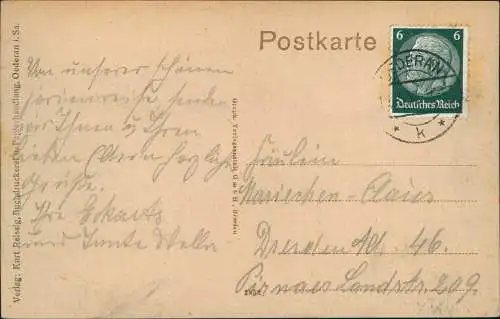 Postkarte
6 6
Deutsches Reich
OEDERAN
k
Von unserer schönen
Ferienreise senden
wir Ihnen u. Ihren
lieben Eltern herzliche
Grüße.
Ihre Eckarts
und Tante Wella
Fräulein
Mariechen Claus
Dresden A. 46.
Pirnaer Landstr. 209.
Verlag: Kurt Reissig, Buchdruckerei u. Papierhandlung, Oederan i. Sa.